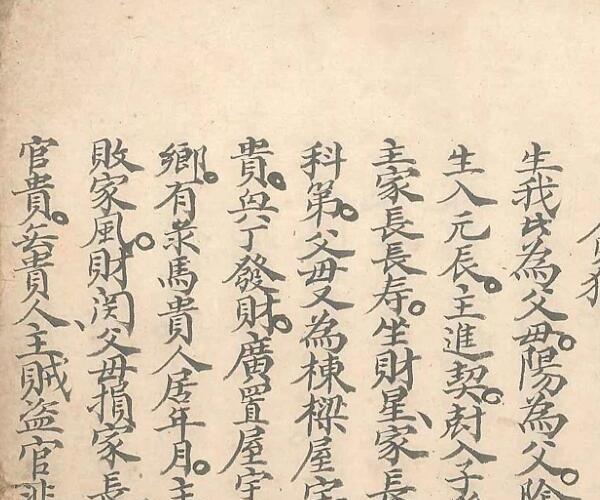 生我此為父母。陽為父。陰
生入元辰。主進契。財入子
主家長長寿。坐財星、家長
科第。父母又為棟樑屋宇
貴。與丁發財。廣置屋宇
鄉。有彔馬貴人居年月。主
敗家風。財閃父母損家長
官貴。無貴人、主賊盗官非